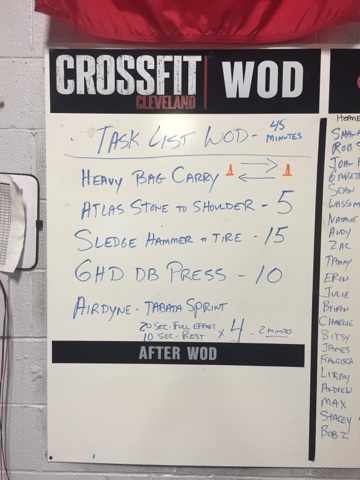 CROSSFIT
CLEVELAND
WOD
TASK LIST WOD - 45 MINUTES
HEAVY BAG CARRY
ATLAS STONE TO SHOULDER - 5
SLEDGE HAMMER TO TIRE - 15
GHD DB PRESS - 10
AIRDYNE - TABATA SPRINT
20 SEC - FULL EFFORT
10 SEC - REST
x 4 - 2 MINUTES
AFTER WOD
ROB
SEAN
NATALIE
AUDY
ZAC
TAMMY
ERIN
JULIE
BRIAN
CHARLIE
BITSY
JAMES
LIBBY
ANDREW
MAX
STACEY
BOB Z